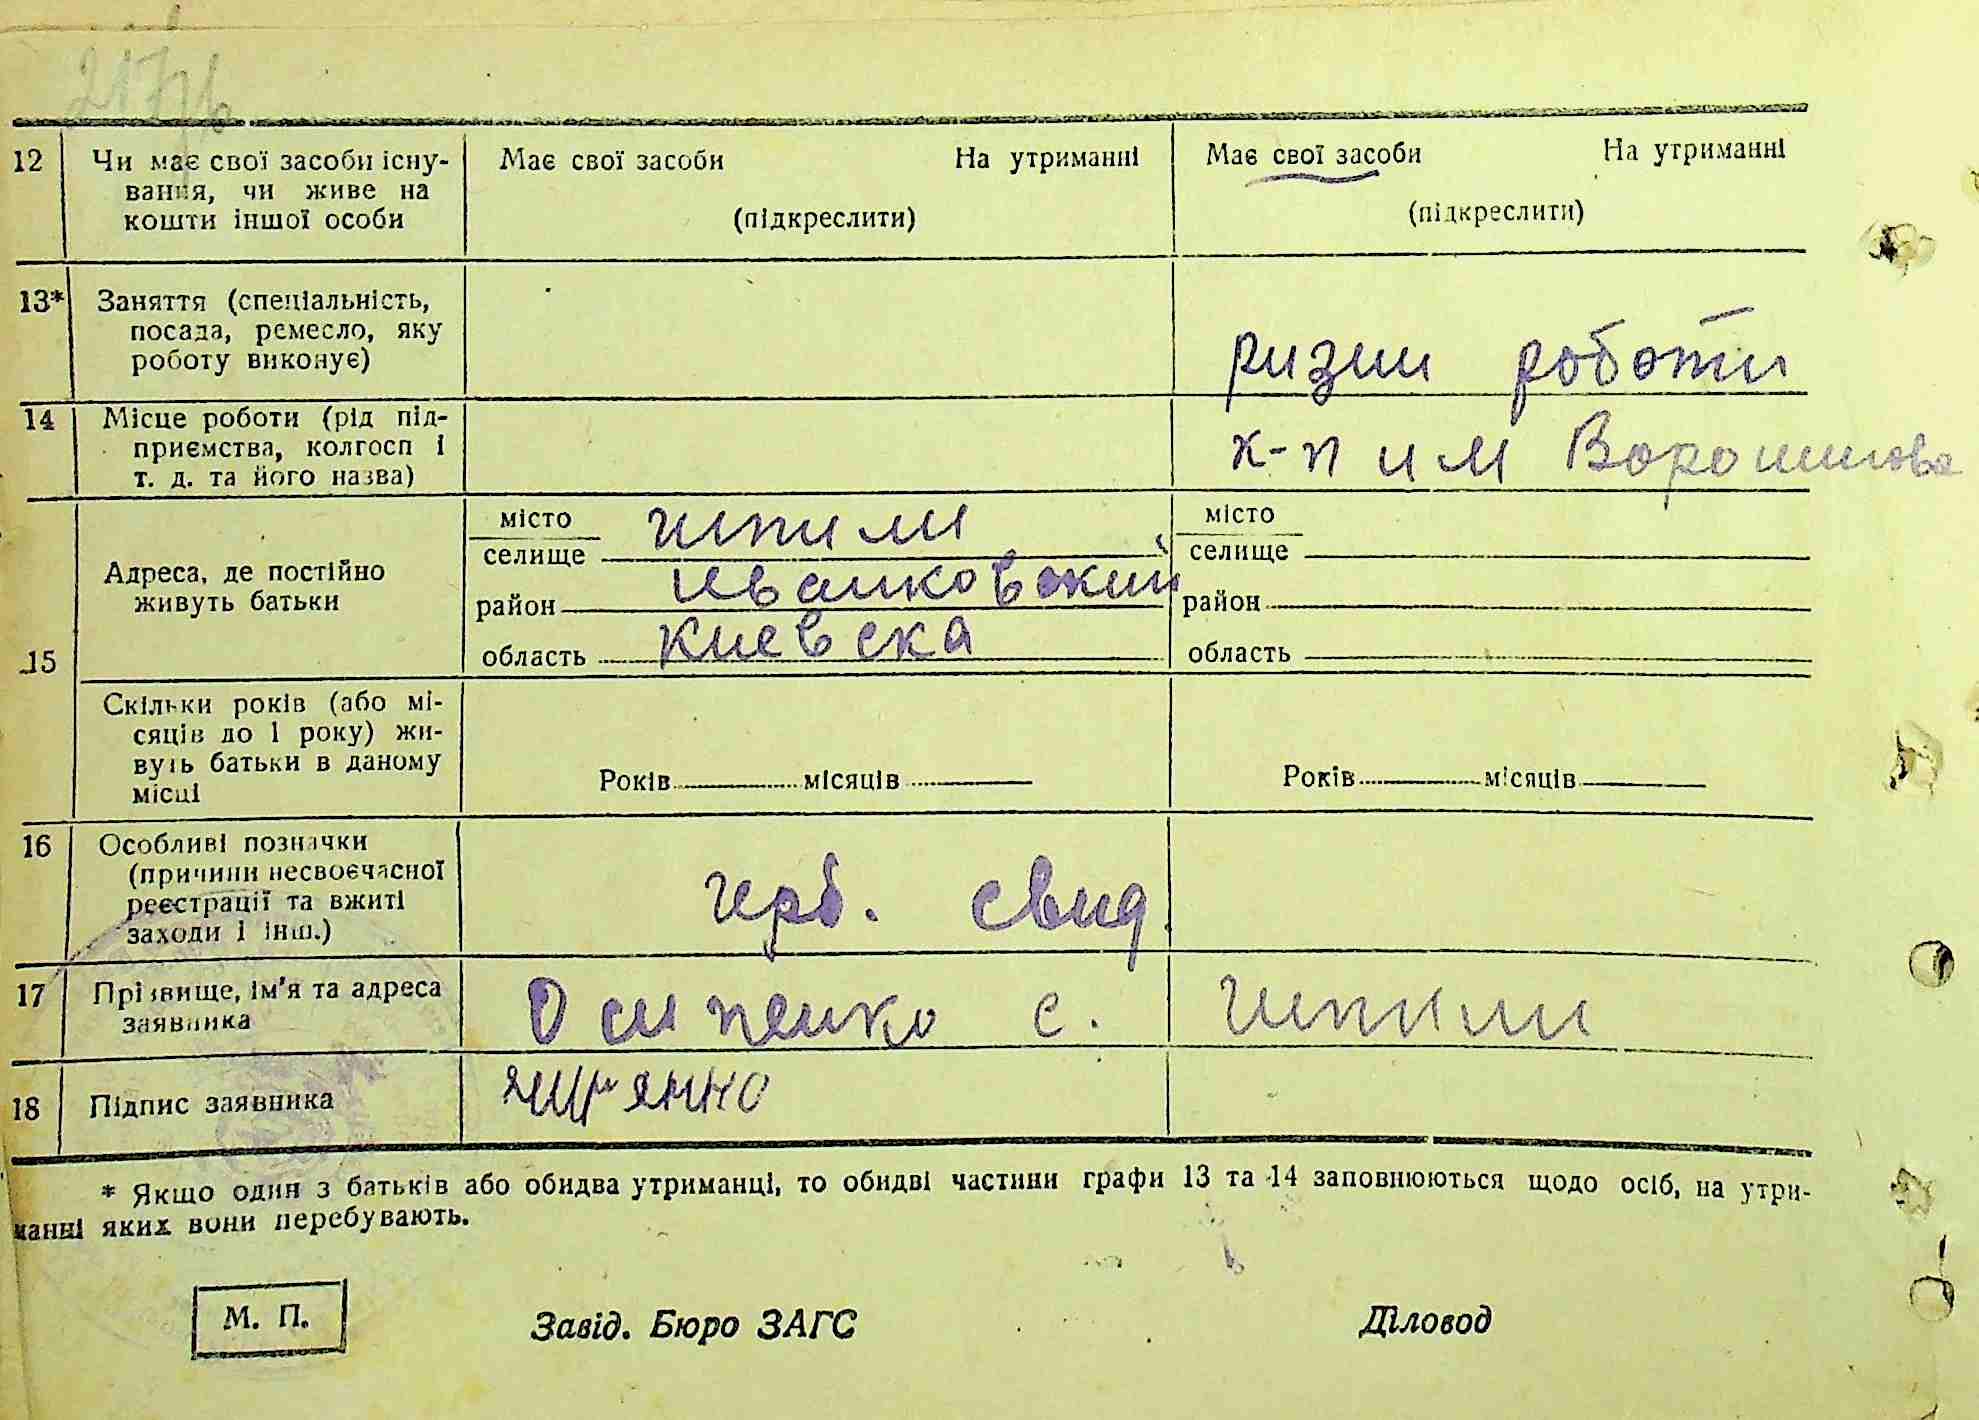 12 Чи має свої засоби існу- Має свої засоби На утриманні Має свої засоби На утриманні
вання, чи живе на
кошти іншої особи (підкреслити) (підкреслити)
13* Заняття (спеціальність,
посада, ремесло, яку
роботу виконує) ризни роботи
14 Місце роботи (рід під-
приємства, колгосп і х-п им Ворошилова
т. д. та його назва)
місто шпили місто
селище селище
Адреса, де постійно
живуть батьки
район иванковский район
15 область киевска область
Скільки років (або мі-
сяців до 1 року) жи-
вуть батьки в даному
місці Років місяців Років місяців
16 Особливі позначки
(причини несвоєчасної
реєстрації та вжиті герб. свид
заходи і інш.)
17 Прізвище, ім'я та адреса
заявника Осипенко с. шпили
18 Підпис заявника
* Якщо один з батьків або обидва утриманці, то обидві частини графи 13 та 14 заповнюються щодо осіб, на утри-
манні яких вони перебувають.
М. П. Завід. Бюро ЗАГС Діловод